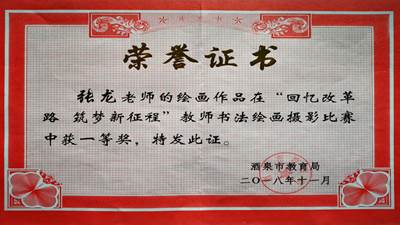 荣誉证书
张龙老师的绘画作品在“回忆改革
路 筑梦新征程”教师书法绘画摄影比赛
中获一等奖，特发此证。
酒泉市教育局
二〇一八年十一月